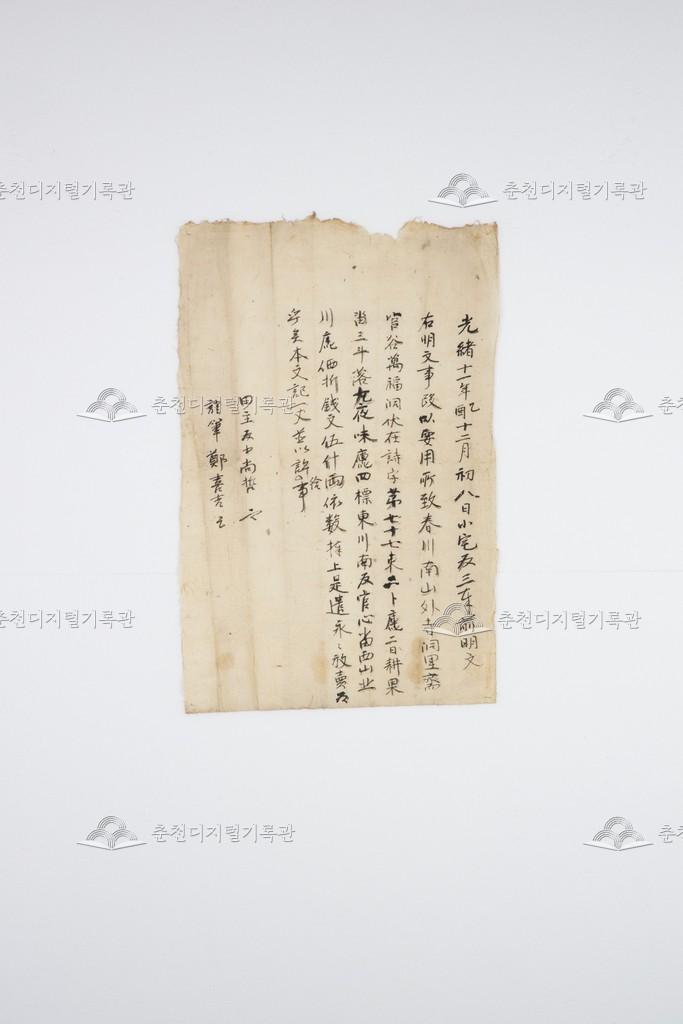 光緒十一年乙酉十二月初八日小宅友三奉前明文
右明文事段以要用所致春川南山外寺洞里齋
官谷萬福洞伏在詩字第七十七束二卜庫二日耕果
畓三斗落九夜味庫四標東川南友官心畓西山北
川庫価折錢文伍什兩依数捧上是遣永〻放賣
本文記一丈並以許給事
田主 尚哲
筆 鄭喜吉
춘천디지털기록관
춘천디지털기록관
춘천디지털기록관
춘천디지털기록관
춘천디지털기록관
춘천디지털기록관